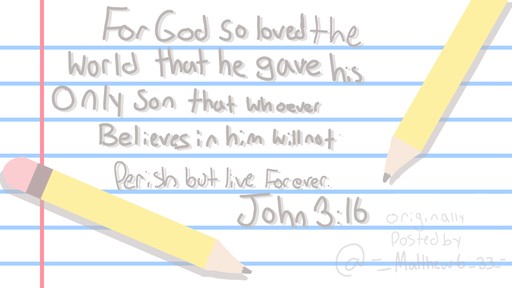 For God so loved the
World that he gave his
Only Son that whoever
Believes in him will not
Perish but live Forever.
John 3:16
originally
Posted by
@-_Matthew6_33_-